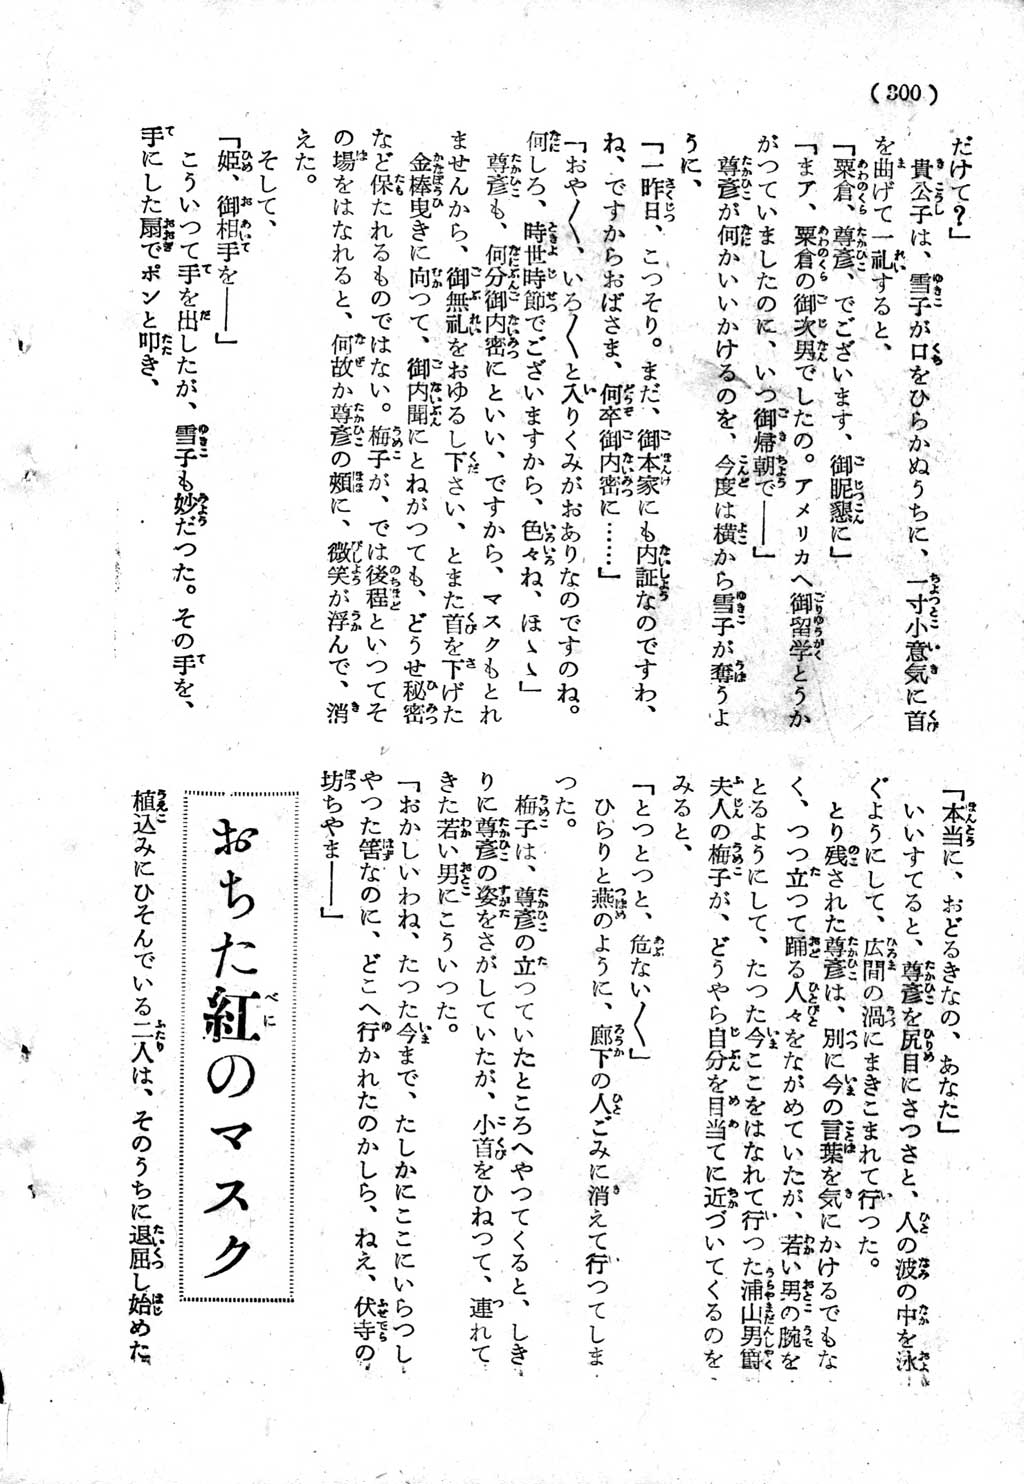 (300)
だけて？」
貴公子は、雪子が口をひらかぬうちに、一寸小意気に首
を曲げて一礼すると、
「粟倉、尊彦、でございます、御昵懇に」
「まア、粟倉の御次男でしたの。アメリカへ御留学とうか
がつていましたのに、いつ御帰朝で――」
尊彦が何かいいかけるのを、今度は横から雪子が奪うよ
うに、
「一昨日、こつそり。まだ、御本家にも内証なのですわ、
ね、ですからおばさま、何卒御内密に……」
「おや〳〵、いろ〳〵と入りくみがおありなのですのね。
何しろ、時世時節でございますから、色々ね、ほゝゝ」
尊彦も、何分御内密にといい、ですから、マスクもとれ
ませんから、御無礼をおゆるし下さい、とまた首を下げた
金棒曳きに向つて、御内聞にとねがつても、どうせ秘密
など保たれるものではない。梅子が、では後程といつてそ
の場をはなれると、何故か尊彦の頰に、微笑が浮んで、消
えた。
そして、
「姫、御相手を――」
こういつて手を出したが、雪子も妙だつた。その手を、
手にした扇でポンと叩き、
「本当に、おどるきなの、あなた」
いいすてると、尊彦を尻目にさつさと、人の波の中を泳
ぐようにして、広間の渦にまきこまれて行つた。
とり残された尊彦は、別に今の言葉を気にかけるでもな
く、つつ立つて踊る人々をながめていたが、若い男の腕を
とるようにして、たつた今ここをはなれて行つた浦山男爵
夫人の梅子が、どうやら自分を目当てに近づいてくるのを
みると、
「とつとつと、危ない〳〵」
ひらりと燕のように、廊下の人ごみに消えて行つてしま
つた。
梅子は、尊彦の立つていたところへやつてくると、しき
りに尊彦の姿をさがしていたが、小首をひねつて、連れて
きた若い男にこういつた。
「おかしいわね、たつた今まで、たしかにここにいらつし
やつた筈なのに、どこへ行かれたのかしら、ねえ、伏寺の
坊ちやま――」
おちた紅のマスク
植込みにひそんでいる二人は、そのうちに退屈し始めた